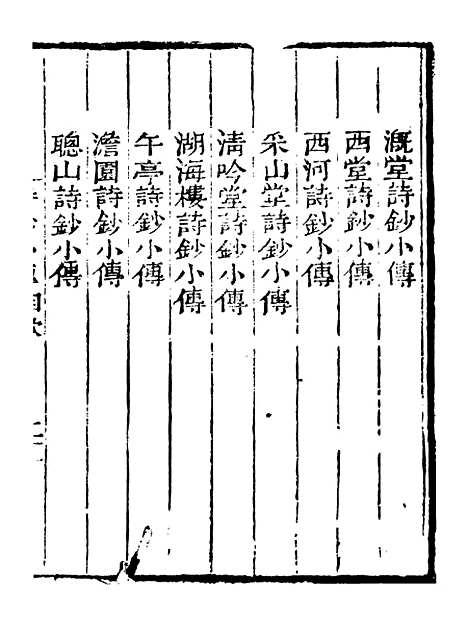 溉堂詩鈔小傳
西堂詩鈔小傳
西河詩鈔小傳
采山堂詩鈔小傳
清吟堂詩鈔小傳
湖海樓詩鈔小傳
午亭詩鈔小傳
澹園詩鈔小傳
聰山詩鈔小傳